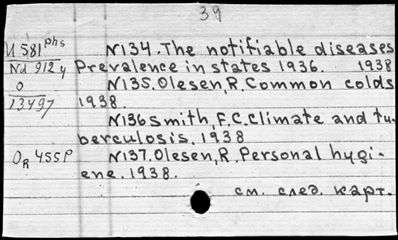 39
U 581 phs N134. The notifiable diseases
Nd 912 y Prevalence in states 1936. 1938
O N135. Olesen, R. Common colds
13497 1938.
N136 Smith, F.C. Climate and tu-
berculosis. 1938
OR 455P N137. Olesen, R. Personal hygi-
ene. 1938.
см. след. карт.